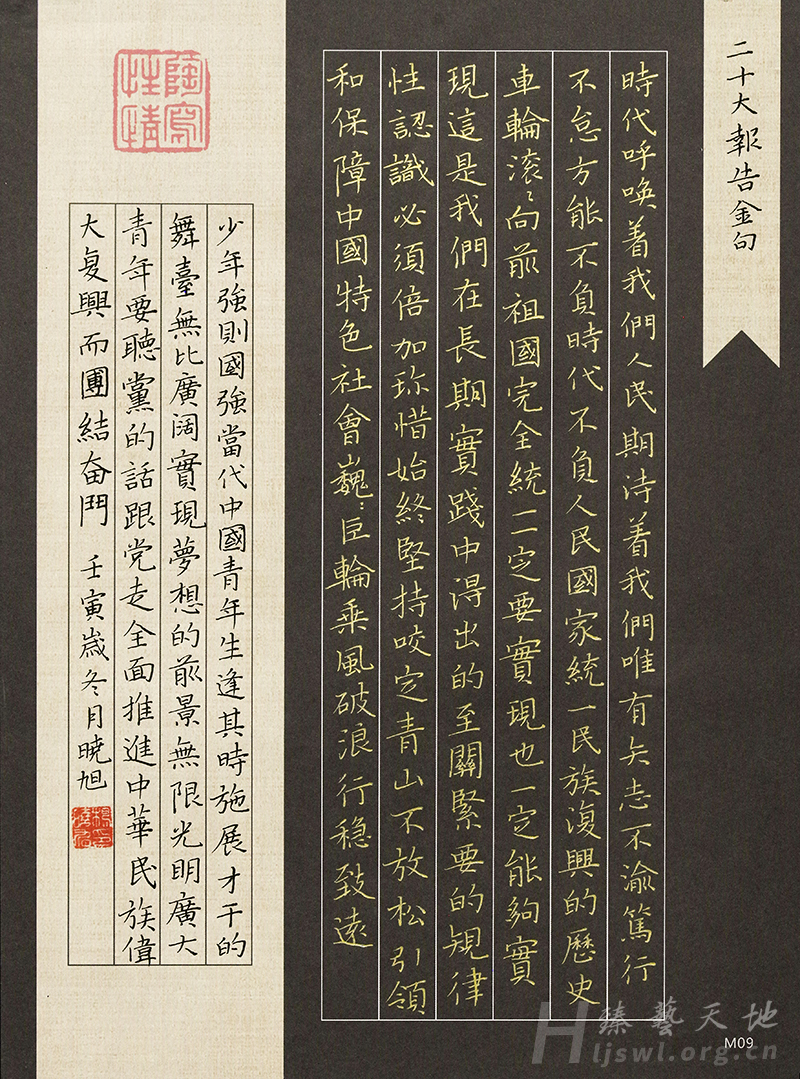 二十大報告金句
時代呼喚着我們人民期待着我們唯有矢志不渝篤行
不怠方能不負時代不負人民國家統一民族復興的歷史
車輪滚〻向前祖國完全統一一定要實現也一定能夠實
現這是我們在長期實踐中得出的至關緊要的規律
性認識必須倍加珎惜始終堅持咬定青山不放松引領
和保障中國特色社會巍〻巨輪乘風破浪行穩致遠
陶寫性情
少年強則國強當代中國青年生逢其時施展才干的
舞臺無比廣阔實現夢想的前景無限光明廣大
青年要聽黨的話跟党走全面推進中華民族偉
大复興而團結奋鬥 壬寅歲冬月曉旭
臻藝天地
Hljswl.org.cn
M09